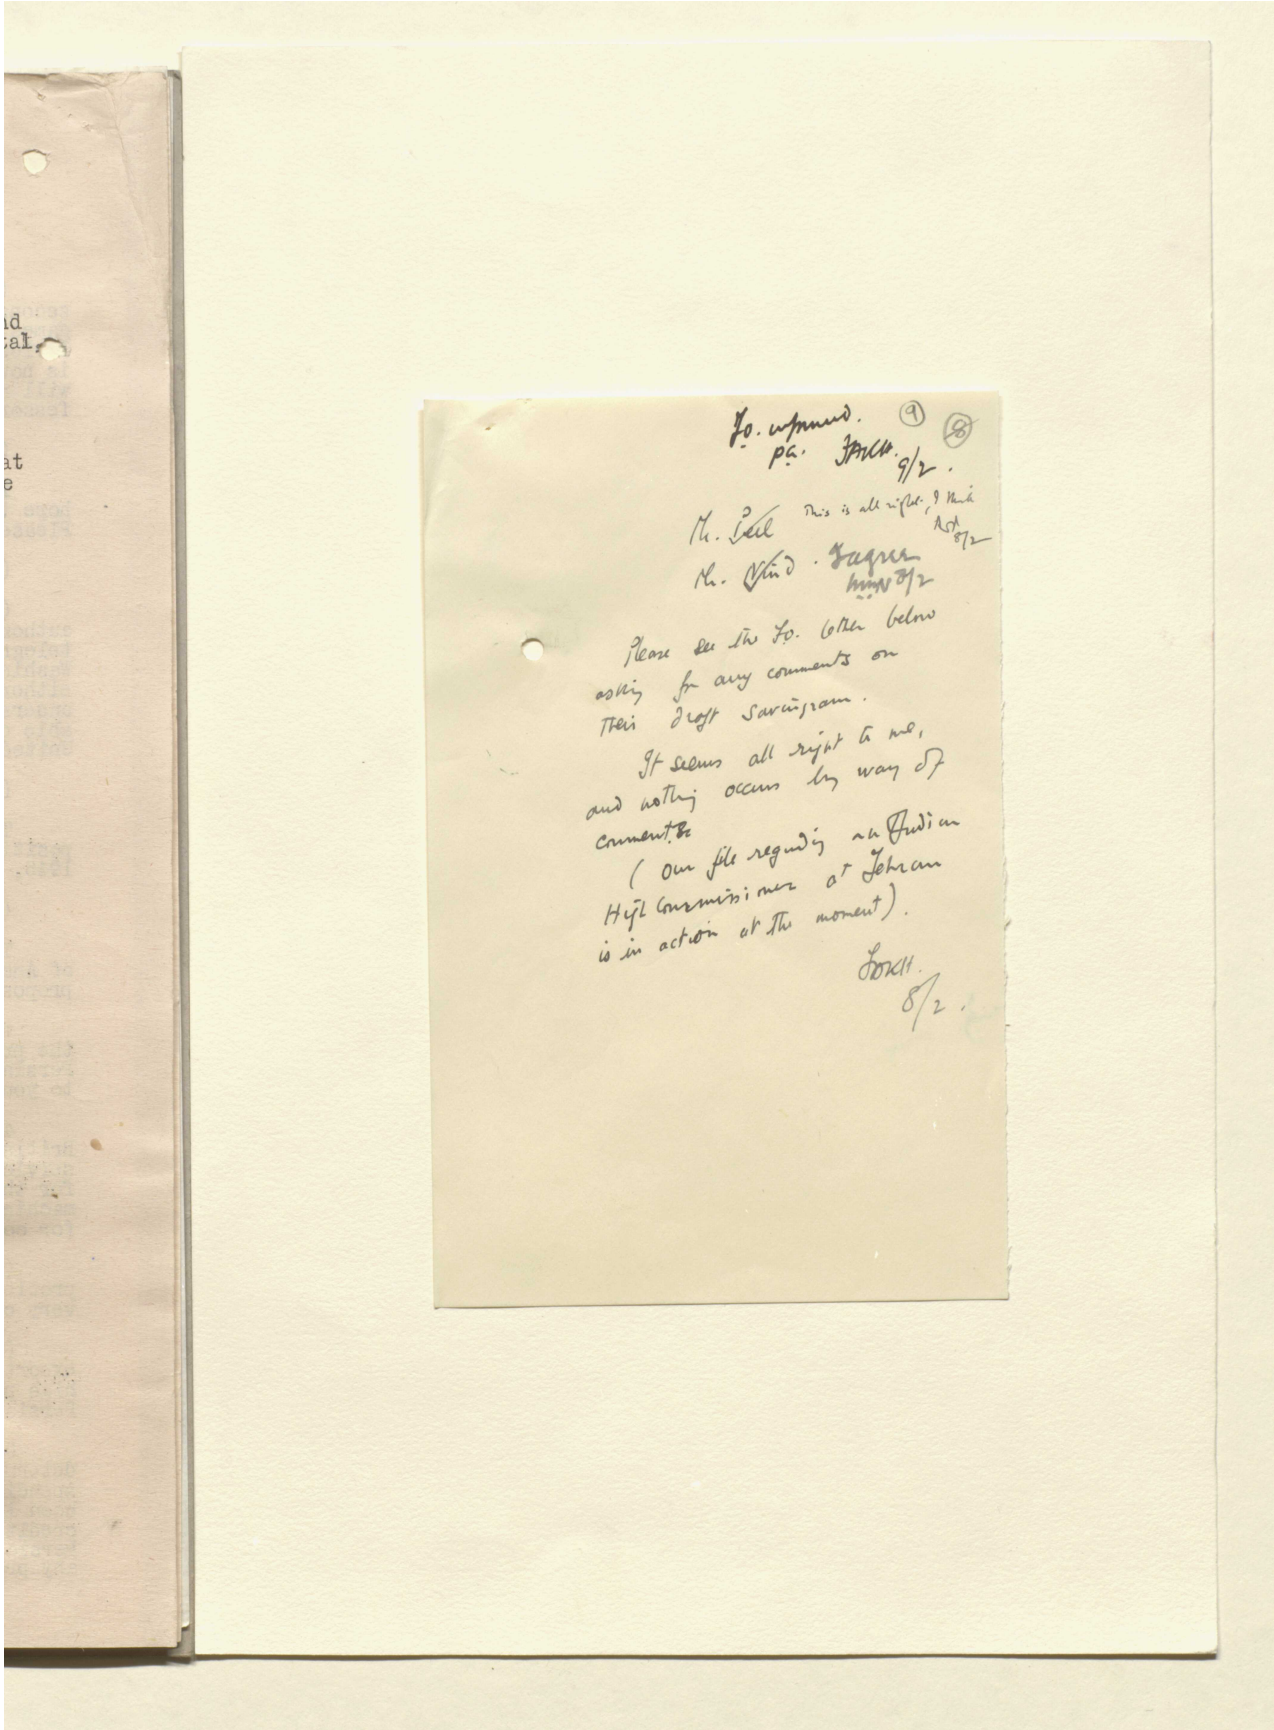 nd
tal,
at
e
F.O. informed. 9 8
p.a. FAKH. 9/2.
Mr. Peel This is all right, I think
8/2
Mr. I agree
8/2
Please see the F.O. letter below
asking for any comments on
their draft savingram.
It seems all right to me,
and nothing occurs by way of
comment.
( Our file regarding an Indian
High Commissioner at Tehran
is in action at the moment).
FAKH.
8/2.